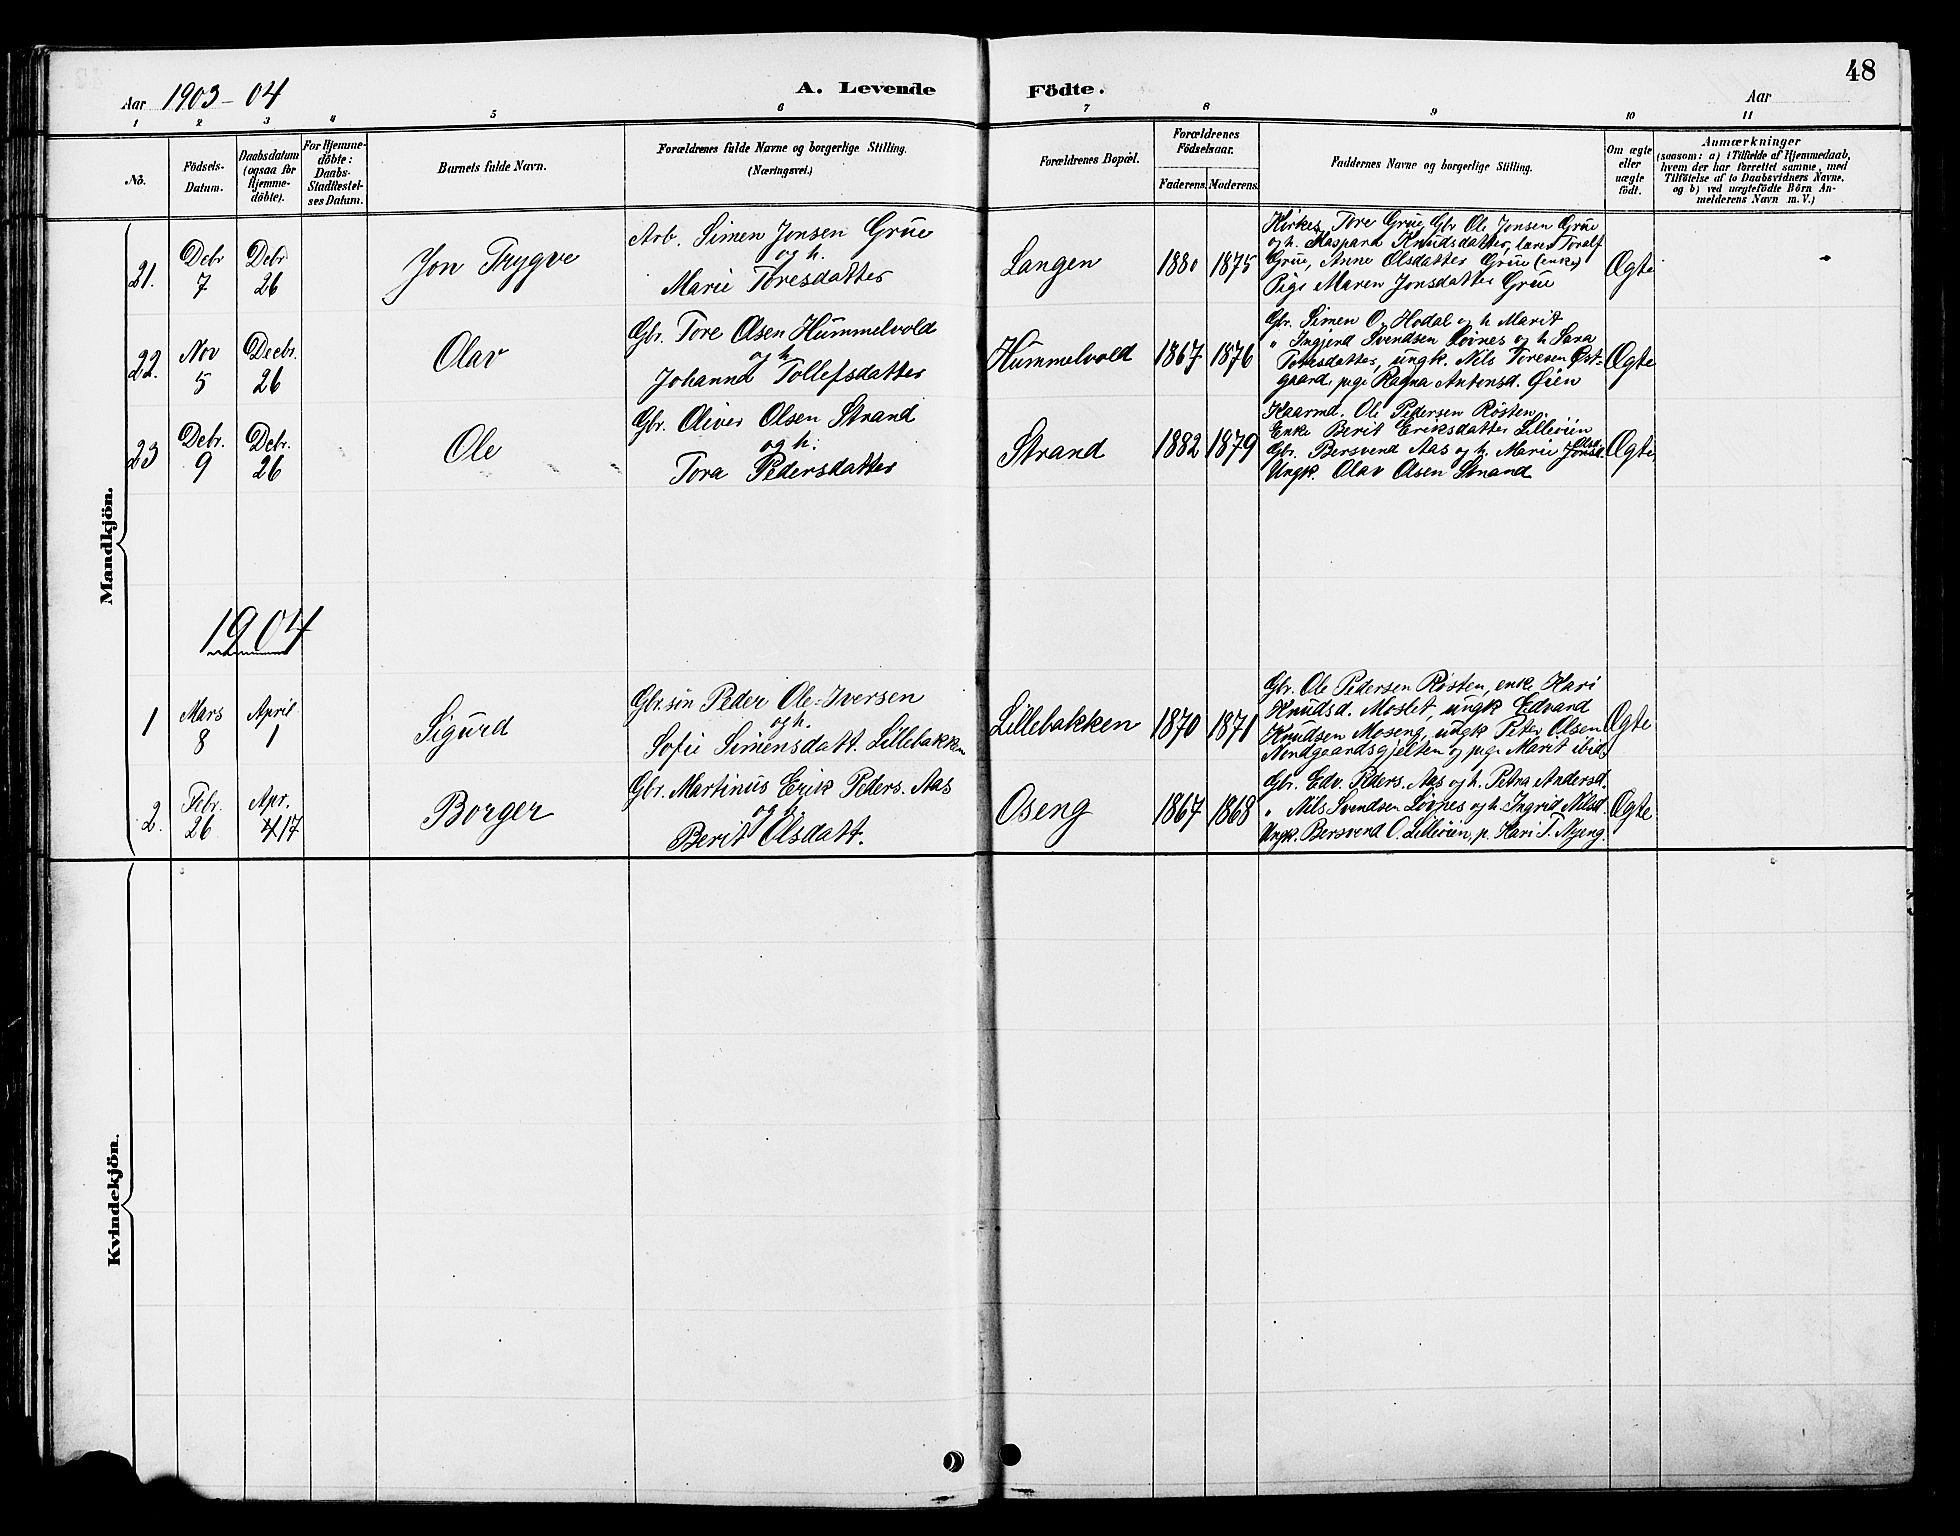 48
Aar 1903-04
A. Levende Födte.
Aar
1 2 3 4 5 6 7 8 9 10 11
No.
Födsels-
Datum.
Daabsdatum
(ogsaa for
Hjemme-
döbte).
For Hjemme-
döbte:
Daabs-
Stadfæstel-
ses Datum.
Barnets fulde Navn.
Forældrenes fulde Navne og borgerlige Stilling.
(Næringsvei.)
Forældrenes Bopæl.
Forældrenes
Födselsaar.
Faderens. Moderens.
Faddernes Navne og borgerlige Stilling.
Om ægte
eller
uægte
födt.
Anmærkninger
(saasom: a) i Tilfælde af Hjemmedaab,
hvem der har forrettet samme, med
Tilföielse af to Daabsvidners Navne,
og b) ved uægtefödte Börn An-
melderens Navn m. V.)
Mandkjön.
21.
Debr
7
Debr
26
Jon Trygve
Arb. Simen Jonsen Grue
og h.
Marie Toresdatter
Langen
1880
1875
Kirkes. Tore Grue Gbr Ole Jonsen Grue
og h. Kaspara Knudsdatter, lærer Toralf
Grue, Anne Olsdatter Grue (enke)
Pige Maren Jonsdatter Grue
Ægte
22.
Nov
5
Decbr.
26
Olav
Gbr. Tore Olsen Hummelvold
og h
Johanna Tollefsdatter
Hummelvold
1867
1876
Gbr. Simen O. Hodal og h Marit
" Ingjerd Svendsen Løvnes og h. Sara
Toresdatter, ungk. Nils Toresen Øst-
gaard, pige Ragna Antonsd. Øien
Ægte
23
Debr.
9
Debr.
26
Ole
Gbr. Oliver Olsen Strand
og h.
Tora Pedersdatter
Strand
1882
1879
Haarmd. Ole Pedersen Røsten.
Enke Berit Eriksdatter Lilleøien
Gbr. Bersvend Aas og h. Marie Jonsd. Olsd.
Ungk. Olav Olsen Strand
Ægte
1904
1
Mars
8
April
1
Sigurd
Gbr. søn Peder Ole-Iversen
og h.
Sofie Simensdatt. Lillebakken
Lillebakken
1870
1871
Gbr. Ole Pedersen Røsten, enke Kari
Knudsd. Moslet, ungk Edvard
Knudsen Moseng, ungk Peter Olsen
Nordgaardsgjelten og pige Marit ibid.
Ægte
2.
Febr.
26
Apr.
4 17
Borger
Gbr. Martinus Erik Peders. Aas
og h
Berit Olsdatt.
Oseng
1867
1868
Gbr. Edv. Peders. Aas og h. Petra Andersd.
" Nils Svendsen Løvnes og h. Ingrid Nilsd.
Ungk. Bersvend O. Lilleøien, p. Kari T. Nyeng.
Ægte
Kvindekjön.